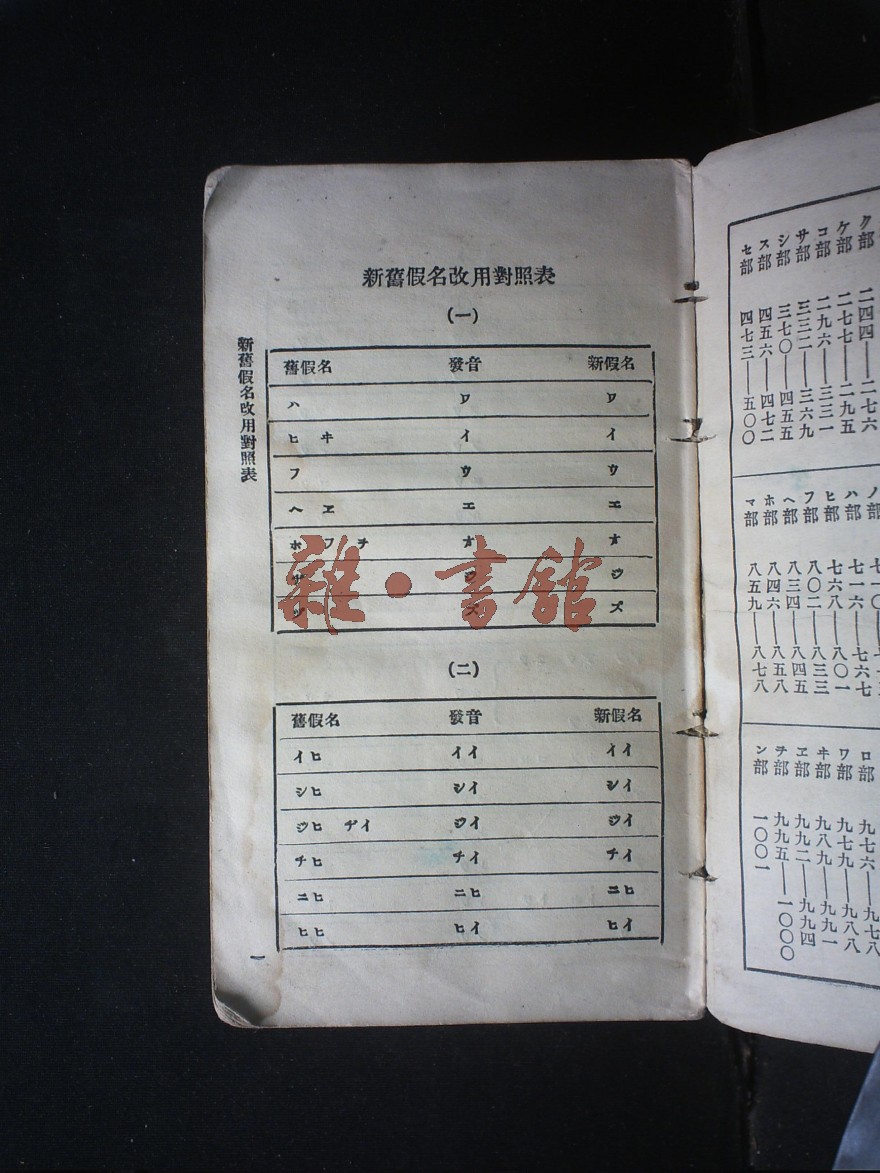 新舊假名改用對照表
(一)
舊假名 發音 新假名
ハ ワ ワ
ヒ ヰ イ イ
フ ウ ウ
ヘ ヱ エ エ
ホ フ ヲ オ オ
ジ ジ
ヅ ズ ズ
(二)
舊假名 發音 新假名
イヒ イイ イイ
シヒ シイ シイ
ジヒ ヂイ ジイ ジイ
チヒ チイ チイ
ニヒ ニヒ ニヒ
ヒヒ ヒイ ヒイ
新舊假名改用對照表
一
雜·書館
ク部 二四四——二七六
ケ部 二七七——二九五
コ部 二九六——三三一
サ部 三三二——三六九
シ部 三七〇——四五五
ス部 四五六——四七二
セ部 四七三——五〇〇
ノ部
ハ部 七一六——七六七
ヒ部 七六八——八〇一
フ部 八〇二——八三三
ヘ部 八三四——八四五
ホ部 八四六——八五八
マ部 八五九——八七八
ロ部 九七六——九七八
ワ部 九七九——九八八
ヰ部 九八九——九九一
ヱ部 九九二——九九四
ヲ部 九九五——一〇〇〇
ン部 一〇〇一